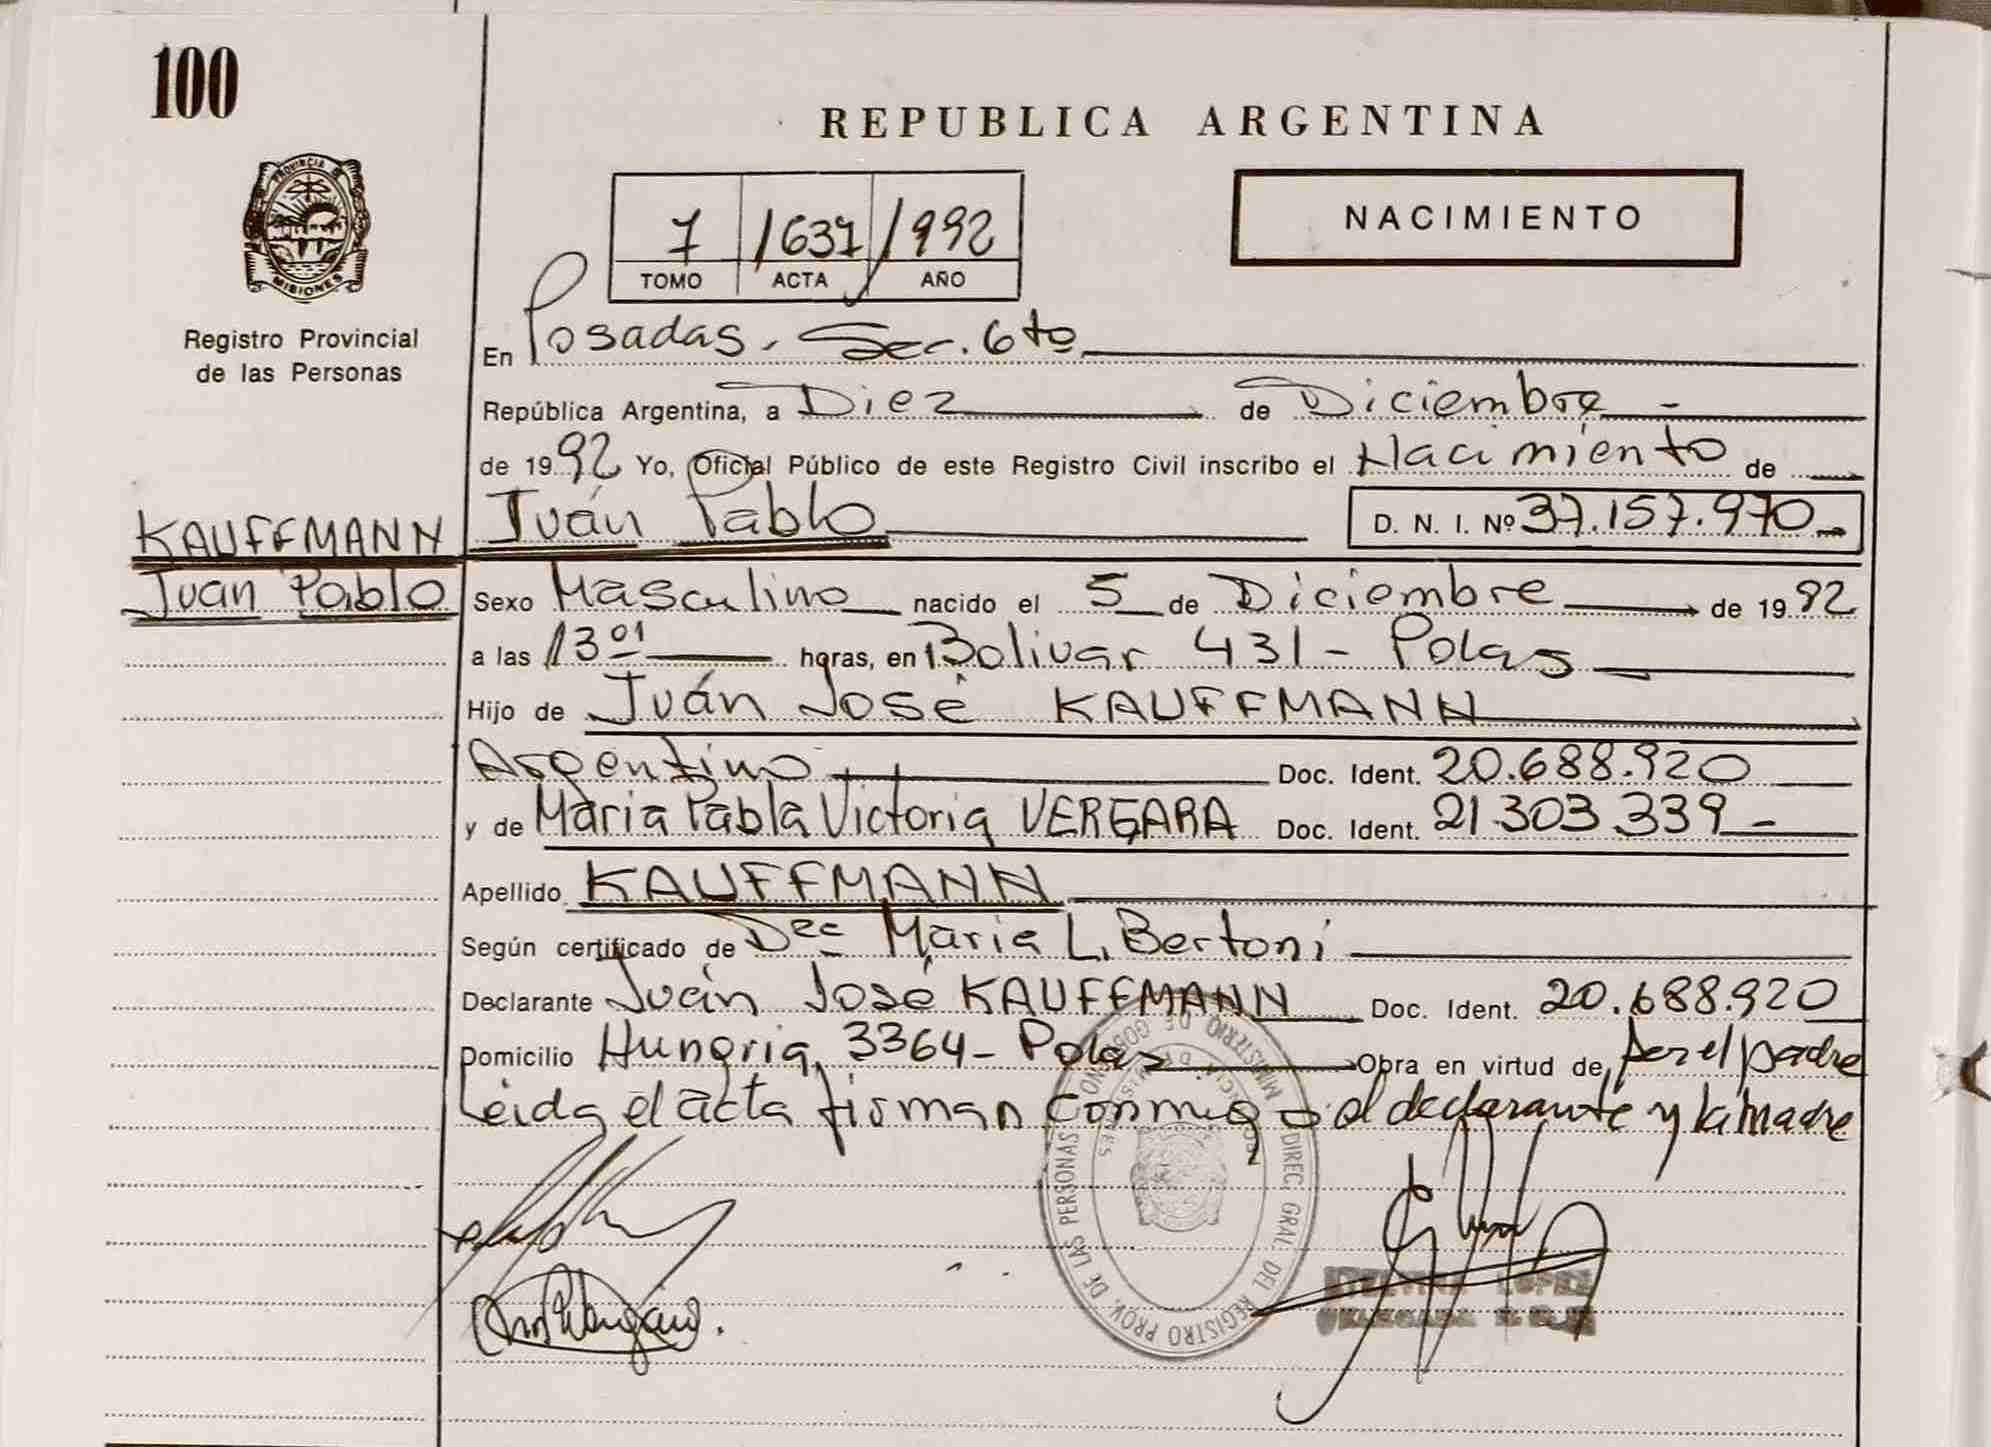 100
REPUBLICA ARGENTINA
PROVINCIA DE
MISIONES
7 /637 /992
TOMO ACTA AÑO
NACIMIENTO
Registro Provincial
de las Personas
En Posadas. Sec. 6to
República Argentina, a Diez de Diciembre -
de 1992 Yo, Oficial Público de este Registro Civil inscribo el Nacimiento de
KAUFFMANN Juán Pablo D. N. I. Nº 37.157.970
Juan Pablo Sexo Masculino nacido el 5 de Diciembre de 1992
a las 13 01 horas, en Bolivar 431 - Pdas
Hijo de Juán José KAUFFMANN
Argentino Doc. Ident. 20.688.920
y de Maria Pabla Victoria VERGARA Doc. Ident. 21.303.339 -
Apellido KAUFFMANN
Según certificado de Maria L. Bertoni
Declarante Juán José KAUFFMANN Doc. Ident. 20.688.920
Domicilio Hungria 3364 - Pdas Obra en virtud de, ser el padre
Leida el acta firman conmigo el declarante y la madre
MINISTERIO DE GOBIERNO
DIREC. GRAL. DEL REGISTRO PROV. DE LAS PERSONAS
LOPEZ